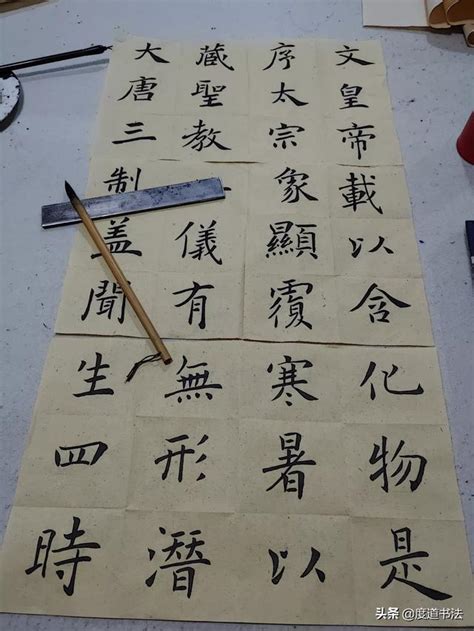 大唐三
藏聖教
序太宗
文皇帝
制盖聞
儀有
象顯覆
載以含
生四時
無形潛
寒暑以
化物是
头条 @度道书法